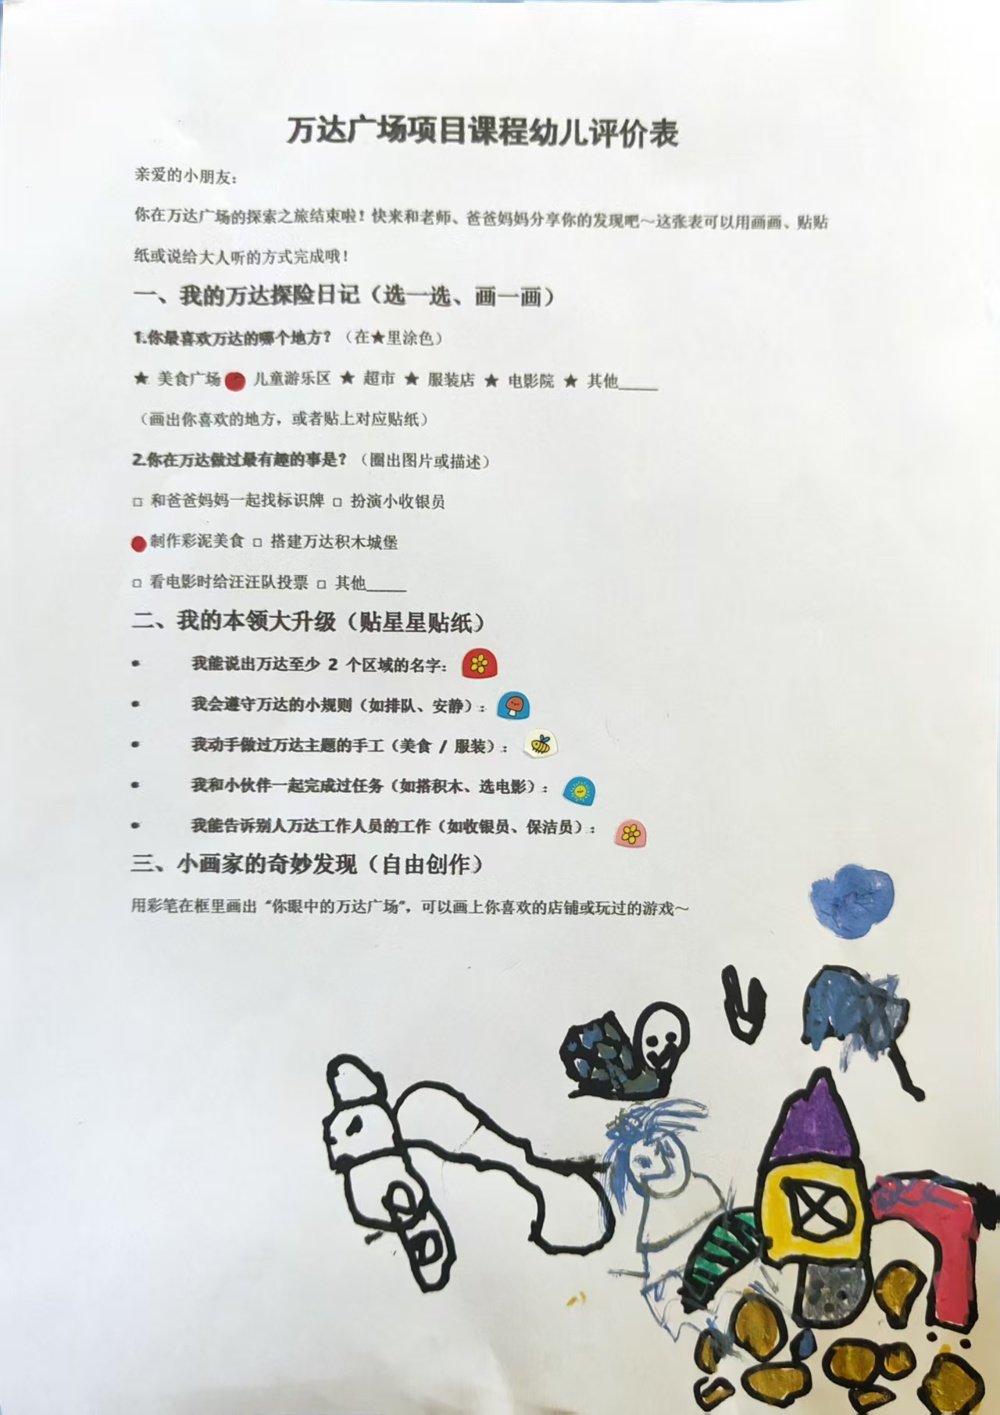 万达广场项目课程幼儿评价表
亲爱的小朋友：
你在万达广场的探索之旅结束啦！快来和老师、爸爸妈妈分享你的发现吧～这张表可以用画画、贴贴
纸或说给大人听的方式完成哦！
一、我的万达探险日记（选一选、画一画）
1.你最喜欢万达的哪个地方？（在★里涂色）
★ 美食广场 儿童游乐区 ★ 超市 ★ 服装店 ★ 电影院 ★ 其他_____
（画出你喜欢的地方，或者贴上对应贴纸）
2.你在万达做过最有趣的事是？（圈出图片或描述）
□ 和爸爸妈妈一起找标识牌 □ 扮演小收银员
制作彩泥美食 □ 搭建万达积木城堡
□ 看电影时给汪汪队投票 □ 其他_____
二、我的本领大升级（贴星星贴纸）
• 我能说出万达至少 2 个区域的名字：
• 我会遵守万达的小规则（如排队、安静）：
• 我动手做过万达主题的手工（美食 / 服装）：
• 我和小伙伴一起完成过任务（如搭积木、选电影）：
• 我能告诉别人万达工作人员的工作（如收银员、保洁员）：
三、小画家的奇妙发现（自由创作）
用彩笔在框里画出“你眼中的万达广场”，可以画上你喜欢的店铺或玩过的游戏～